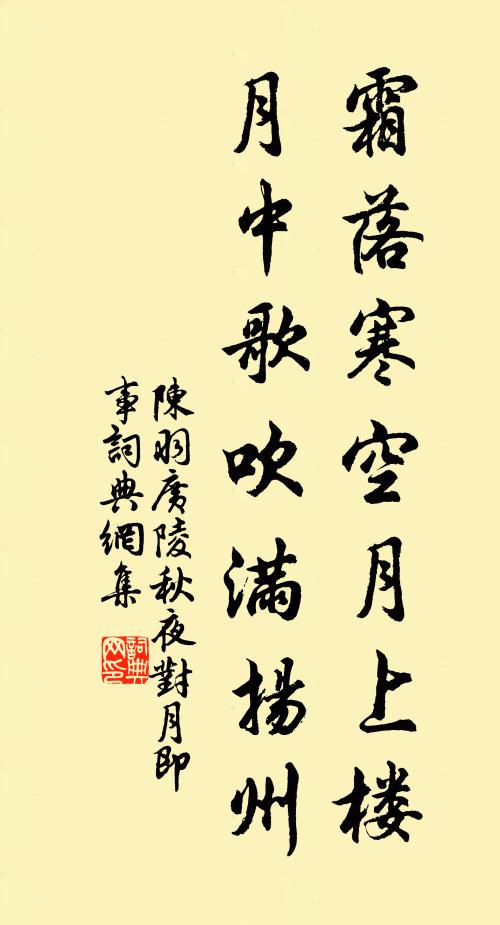 霜落寒空月上楼
月中歌吹滿揚州
陳羽廣陵秋夜對月即
事詞典網集
詞典
网印